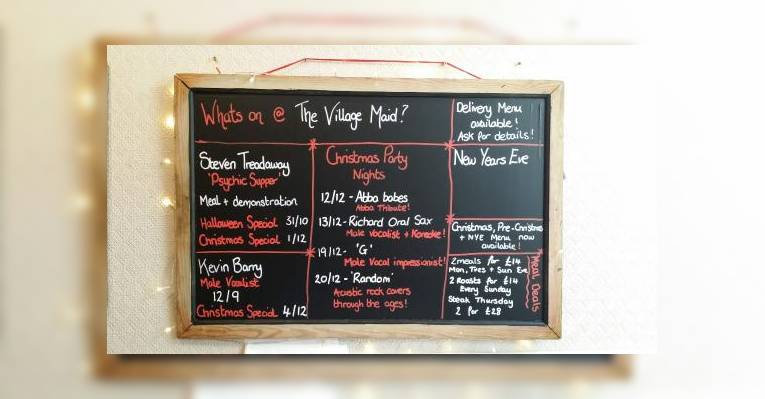 Whats on @ The Village Maid?
Delivery Menu
available!
Ask for details!
Steven Treadaway
'Psychic Supper'
Meal + demonstration
Halloween Special 31/10
Christmas Special 1/12
Kevin Barry
Male Vocalist
12/9
Christmas Special 4/12
Christmas Party
Nights
12/12 - Abba babes
Abba Tribute!
13/12 - Richard Oral Sax
Male vocalist + Karaoke!
19/12 - 'G'
Male Vocal impressionist!
20/12 - 'Random'
Acoustic rock covers
through the ages!
New Years Eve
Christmas, Pre-Christmas
+ NYE Menu now
available!
2 meals for £14
Mon, Tues + Sun Eve
2 Roasts for £14
Every Sunday
Steak Thursday
2 for £28
Meal Deals